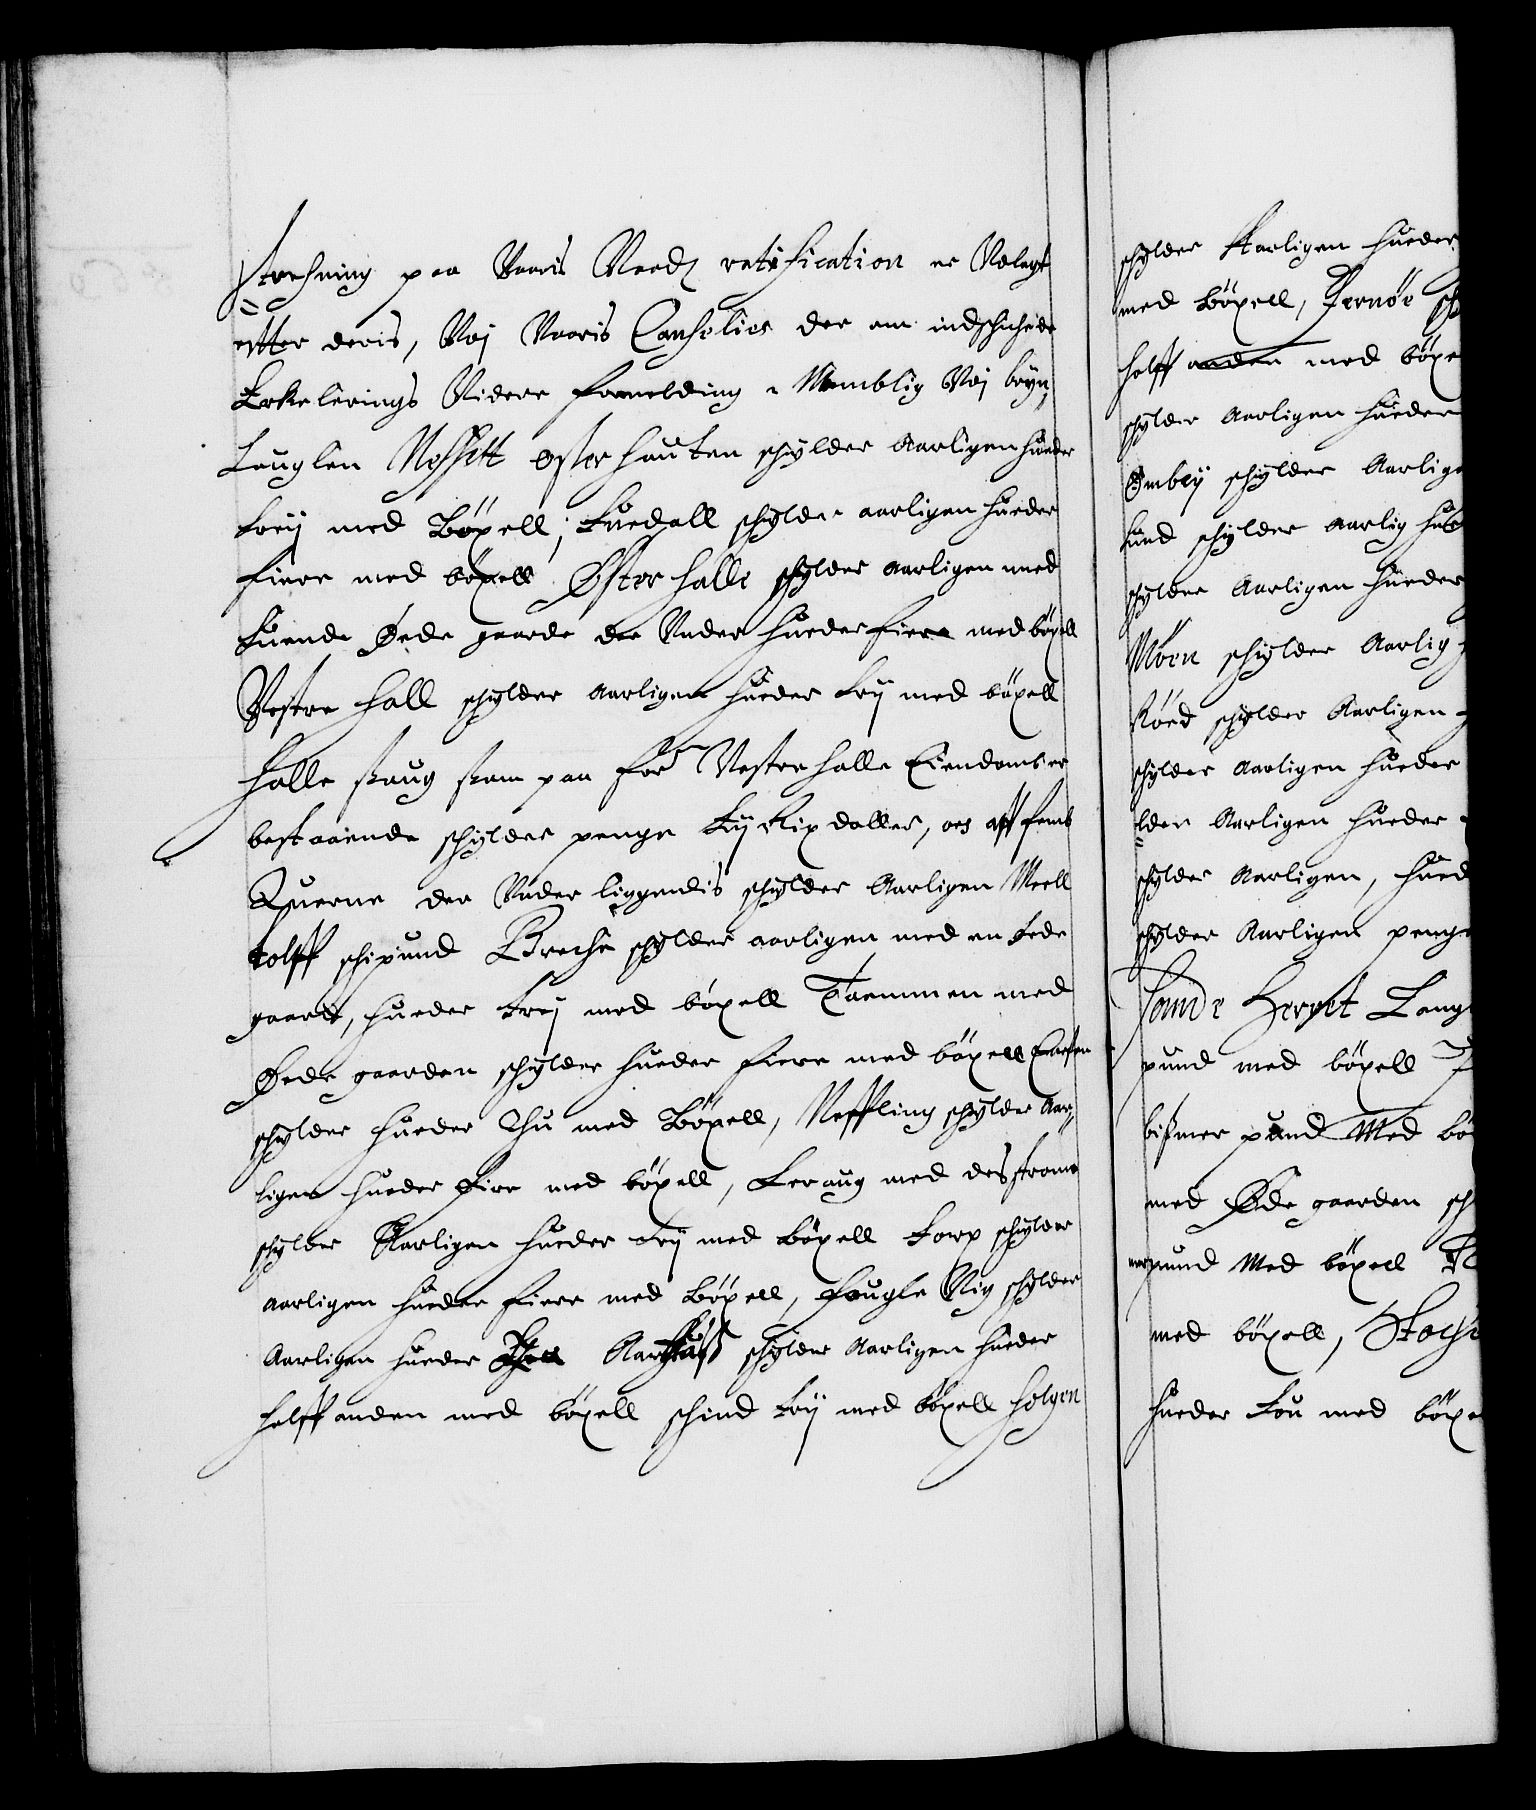 streching paa Voris Naadz ratification er Vdlagt
efter deris, Vdj Voris Cancelies der om indschichede
Erkelerings Videre formelding, Nemblig Vdj bryn
Lauglen Nesset østor hauten schylder Aarligen hueder
trij med Böxell, Luedall schylder aarligen hueder
fiere med böxell Østor halle schylder aarligen med
tuende Øede gaarde der Vnder hueder fiere med böxell
Vestre hall schylder Aarligen hueder trij med böxell
halle skaug som paa for: Vestre halle Eiendomb er
bestaaende schylder penge trij Rixdaller, oc aff femb
Querne der Vnder liggendis schylder Aarligen Meell
tolff schipund Breche schylder aarligen med en øede
gaard, hueder trij med böxell Taemmen med
Øede gaarden schylder hueder fiere med böxell
schylder hueder Thu med Böxell, Neffling schylder Aar
ligen hueder fire med böxell, Leraug med des strome
schylder Aarligen hueder trij med Böxell Torp schylder
aarligen hueder fiere med Böxell, fougle Vig schylder
Aarligen hueder schylder Aarligen hueder
halff anden med böxell schind trij med böxell Helgen
schylder Aarligen hueder
med Böxell, Jernöe sch
halff anden med böxe
schylder Aarligen hueder
Ombey schylder Aarlige
Lund schylder Aarlig hue
schylder Aarligen hueder
Moen schylder Aarlig
Röed schylder Aarligen
schylder Aarligen hueder
lder Aarligen hueder
schylder Aarligen, hued
schylder Aarligen penge
Sande Herret Lang
pund med böxell
bißmer pund Med bö
med Øde gaarden sch
merpund Med böxell
med böxell,
hueder tou med böxe